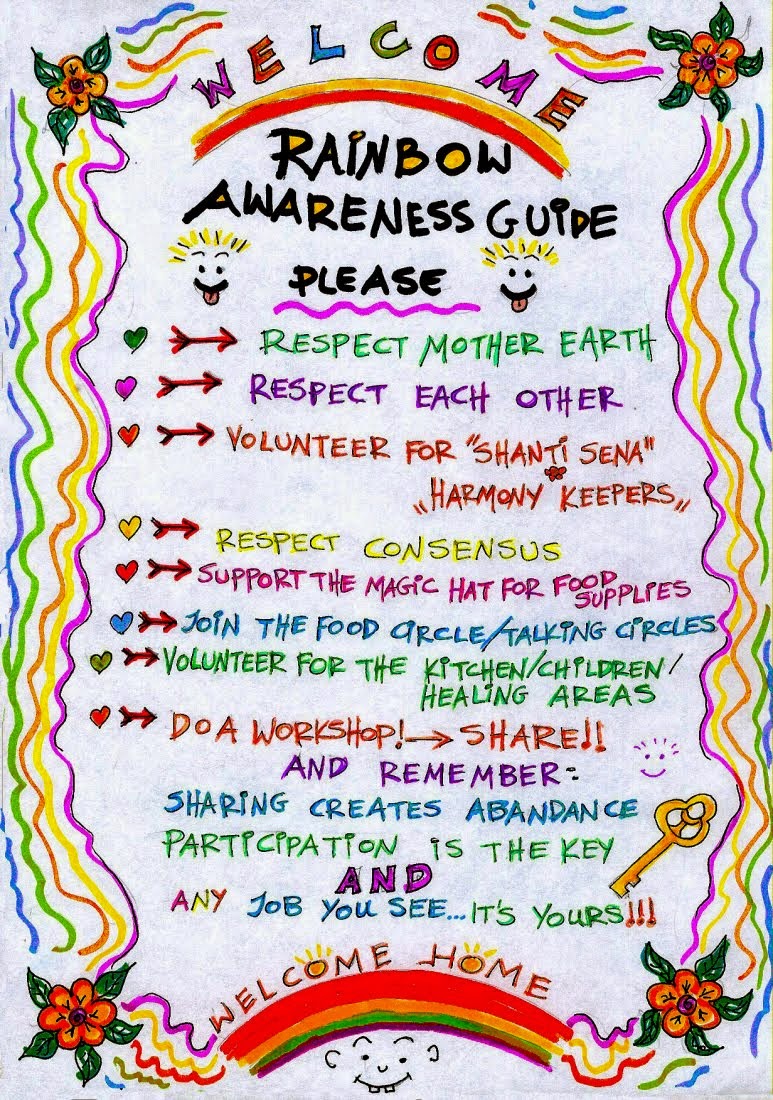 WELCOME
RAINBOW
AWARENESS GUIDE
PLEASE
RESPECT MOTHER EARTH
RESPECT EACH OTHER
VOLUNTEER FOR "SHANTI SENA"
"HARMONY KEEPERS"
RESPECT CONSENSUS
SUPPORT THE MAGIC HAT FOR FOOD
SUPPLIES
JOIN THE FOOD CIRCLE/TALKING CIRCLES
VOLUNTEER FOR THE KITCHEN/CHILDREN/
HEALING AREAS
DO A WORKSHOP! → SHARE!!
AND REMEMBER:
SHARING CREATES ABANDANCE
PARTICIPATION IS THE KEY
AND
ANY JOB YOU SEE... IT'S YOURS!!!
WELCOME HOME